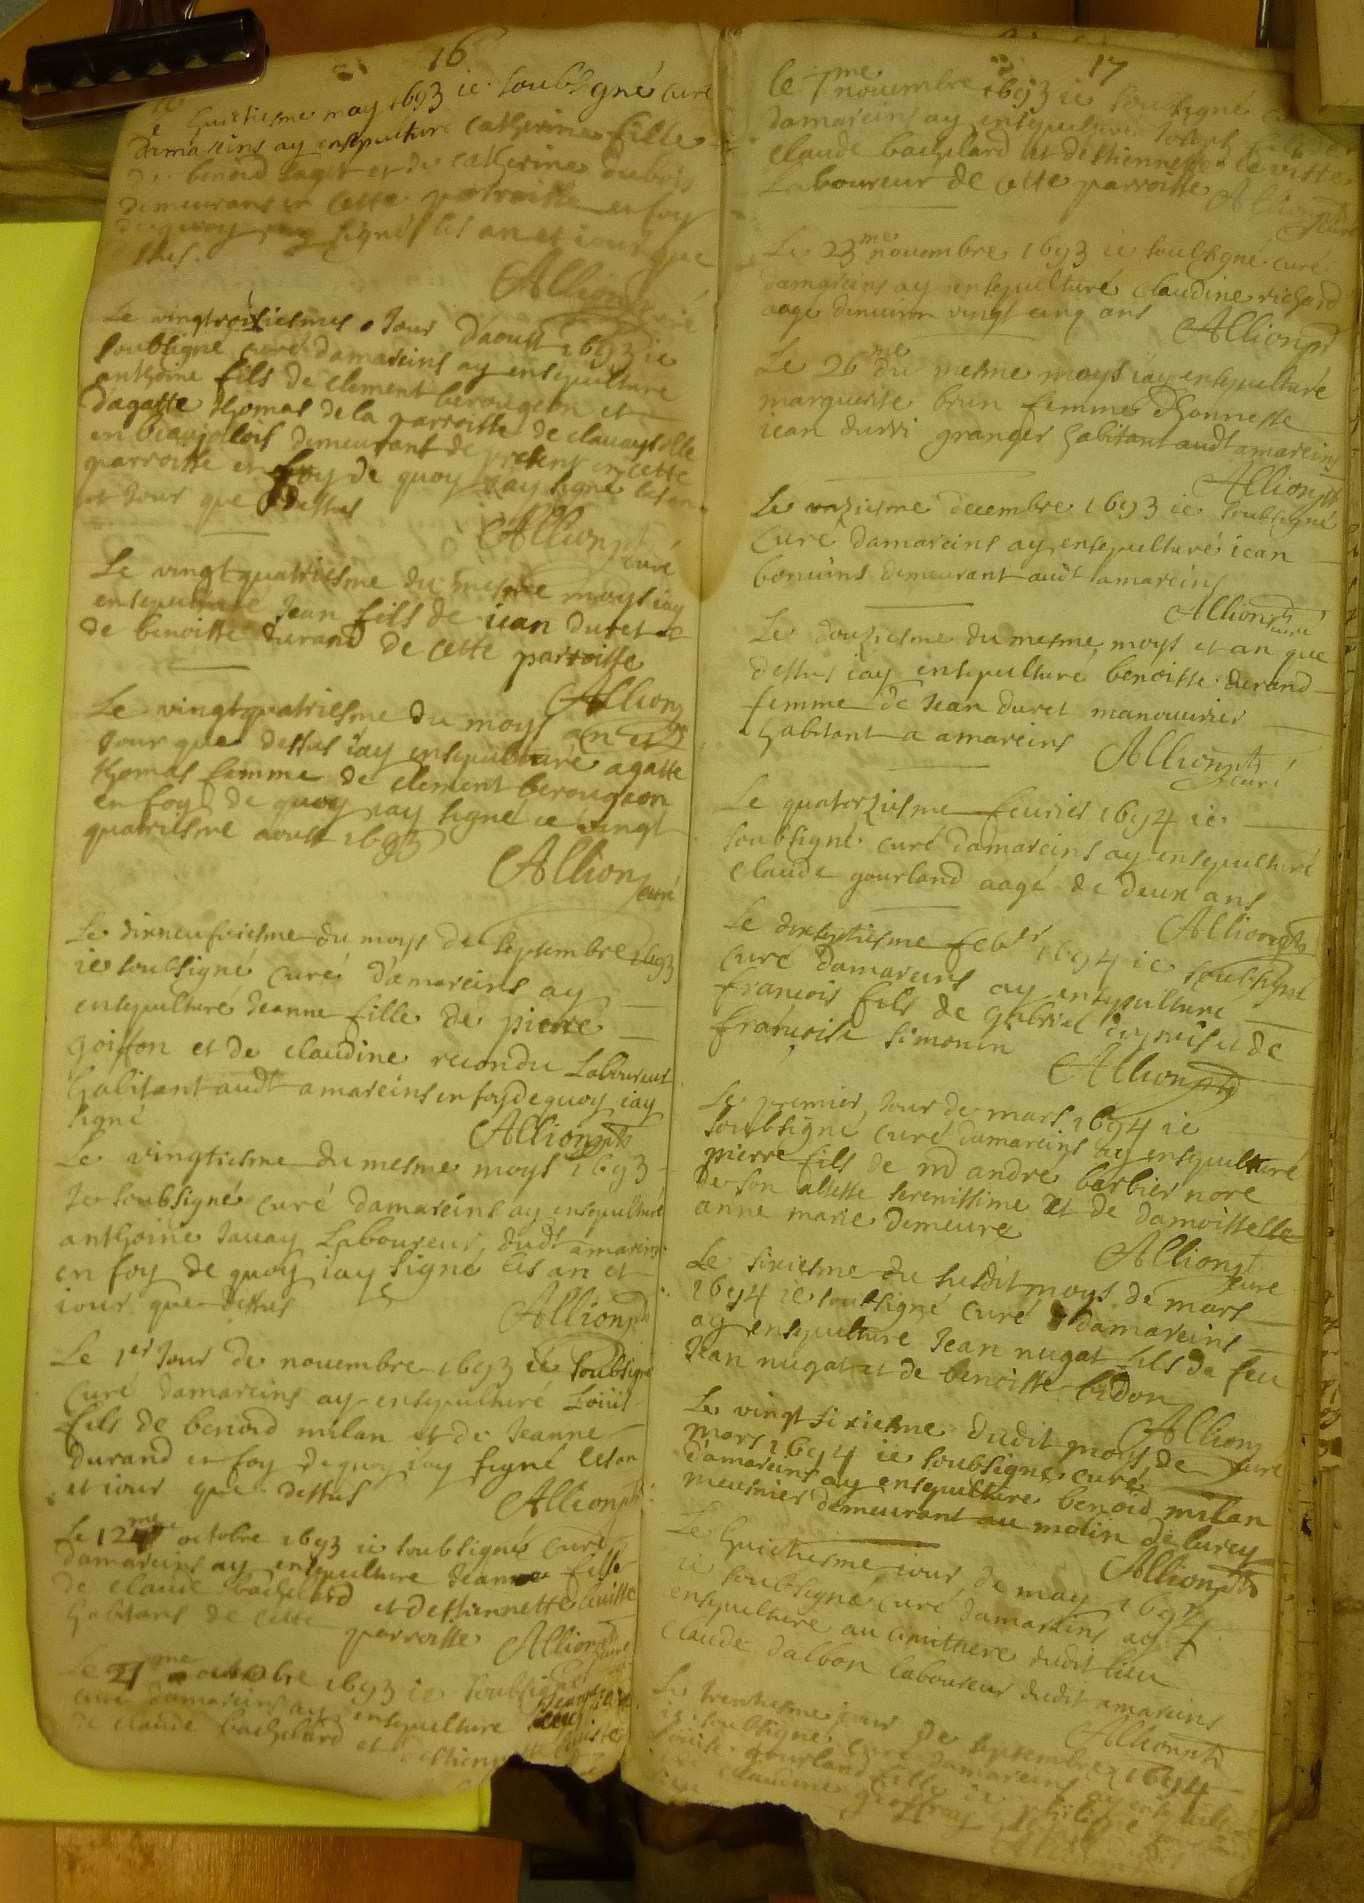 16
huictiesme may 1693 ie soubsigné curé
damareins ay ensepulturé catherine fille
de benoid et de catherine dubois
demeurans en cette parroisse en foy
dequoy iay signé les an et iour que
sus.
Allion curé
Le vingtroisiesme Jour daoust 1693 ie
soubsigné curé damareins ay ensepulturé
anthoine fils de clement berougeon et
dagatte thomas de la parroisse de
en beaujollois demeurant de present en cette
parroisse en foy de quoy iay signé les an
et Jour que dessus
Allion ptr curé
Le vingtquatriesme du mesme moys iay
ensepulturé Jean fils de iean duret et
de benoiste durand de cette parroisse
Allion
Le vingtquatriesme du moys an et
Jour que dessus iay ensepulturé agatte
thomas femme de clement berougeon
en foy de quoy iay signé ce vingt
quatriesme aoust 1693
Allion curé
Le dixneufviesme du moys de septembre 1693
ie soubsigné curé d'amareins ay
ensepulturé Jeanne fille de pierre
goiffon et de claudine reiondu Laboureur
habitant audt amareins en foy de quoy iay
signé
Allion ptr
Le vingtiesme du mesme moys 1693
Je soubsigné curé damareins ay ensepulturé
anthoine Jauay Laboureur, dudt amareins
en foy de quoy iay signé les an et
iour que dessus
Allion ptr
Le 1er Jour de novembre 1693 ie soubsigné
curé damareins ay ensepulturé Loüis
fils de benoid milan et de Jeanne
durand en foy de quoy iay signé les an
et iour que dessus
Allion ptr
Le 12me octobre 1693 ie soubsigné curé
damareins ay ensepulturé Jeanne fille
de claude bachelard et destiennette leuiste
habitans de cette parroisse
Allion ptr curé
Le 21me octobre 1693 ie soubsigné
curé damareins ay ensepulturé
de claude bachelard et destiennette
17
le 7me novembre 1693 ie soubsigné
damareins ay ensepulturé Joseph
claude bachelard et destiennette leviste
Laboureur de cette parroisse
Allion ptr curé
Le 23me novembre 1693 ie soubsigné curé
damareins ay ensepulturé claudine richard
aagé denuiron vingt cinq ans
Allion ptr
Le 26me du mesme moys iay ensepulturé
marguerite brun femme dhonneste
iean durri granger habitant audt amareins
Allion ptr
Le onziesme decembre 1693 ie soubsigné
Curé damareins ay ensepulturé iean
bonuins demeurant audt amareins
Allion ptr curé
Le douziesme du mesme moys et an que
dessus iay ensepulturé benoiste durand
femme de Jean duret manouurier
habitant a amareins
Allion ptr curé
Le quatorziesme feurier 1694 ie
soubsigné curé damareins ay ensepulturé
claude gourland aagé de deux ans
Allion ptr
Le dixseptiesme febr 1694 ie soubsigné
curé damareins ay ensepulturé
francois fils de gabriel et de
françoise simonin
Allion ptr
Le premier Jour de mars 1694 ie
soubsigné curé damareins ay ensepulturé
pierre fils de md andre barbier nore
de son altesse serenissime et de damoiselle
anne marie demeure
Allion ptr curé
Le sixiesme du susdit moys de mars
1694 ie soubsigné curé damareins
ay ensepulturé Jean nugat fils de feu
Jean nugat et de benoiste bidon
Allion curé
Le vingt sixiesme dudit moys de
mars 1694 ie soubsigné curé
d'amareins ay ensepulturé benoid milan
meusnier demeurant au molin de lurcy
Allion ptr
Le huictiesme iour de may 1694
ie soubsigné curé damareins ay
ensepulturé au cimithere dudit lieu
claude dalbon laboureur dudit amareins
Allion ptr
Le trentiesme jour de septembre 1694
ie soubsigné curé damareins ay ensepulturé
Loüise gourland fille de
claudine geoffray